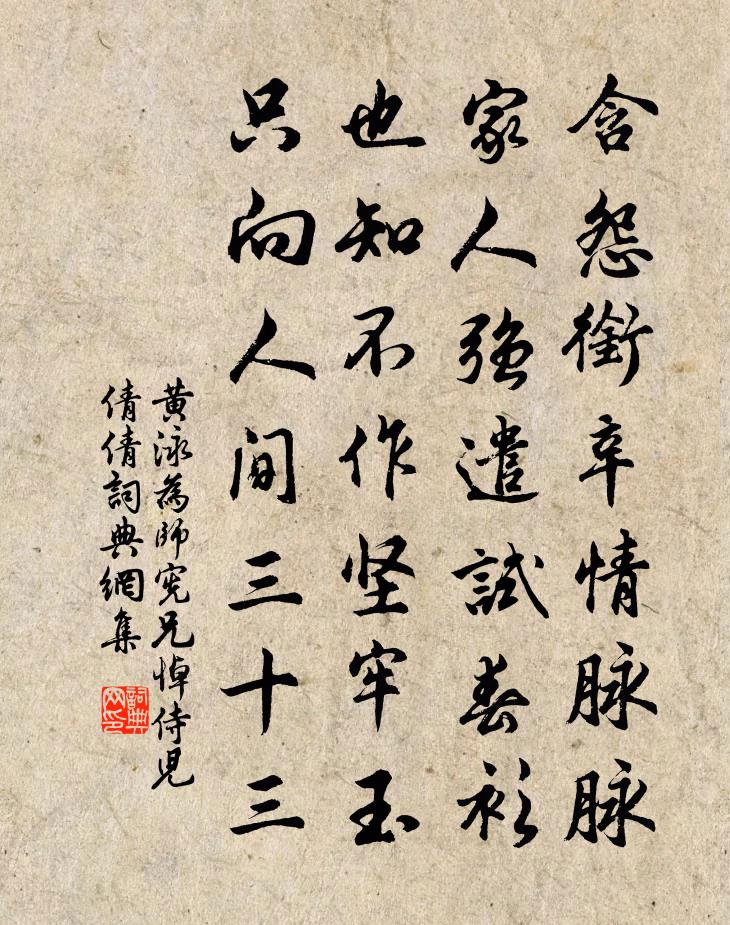 含怨銜辛情脉脉
家人強遣試春衫
也知不作坚牢玉
只向人间三十三
黄泳為師宪兄悼侍児
倩倩詞典網集
詞典
网印